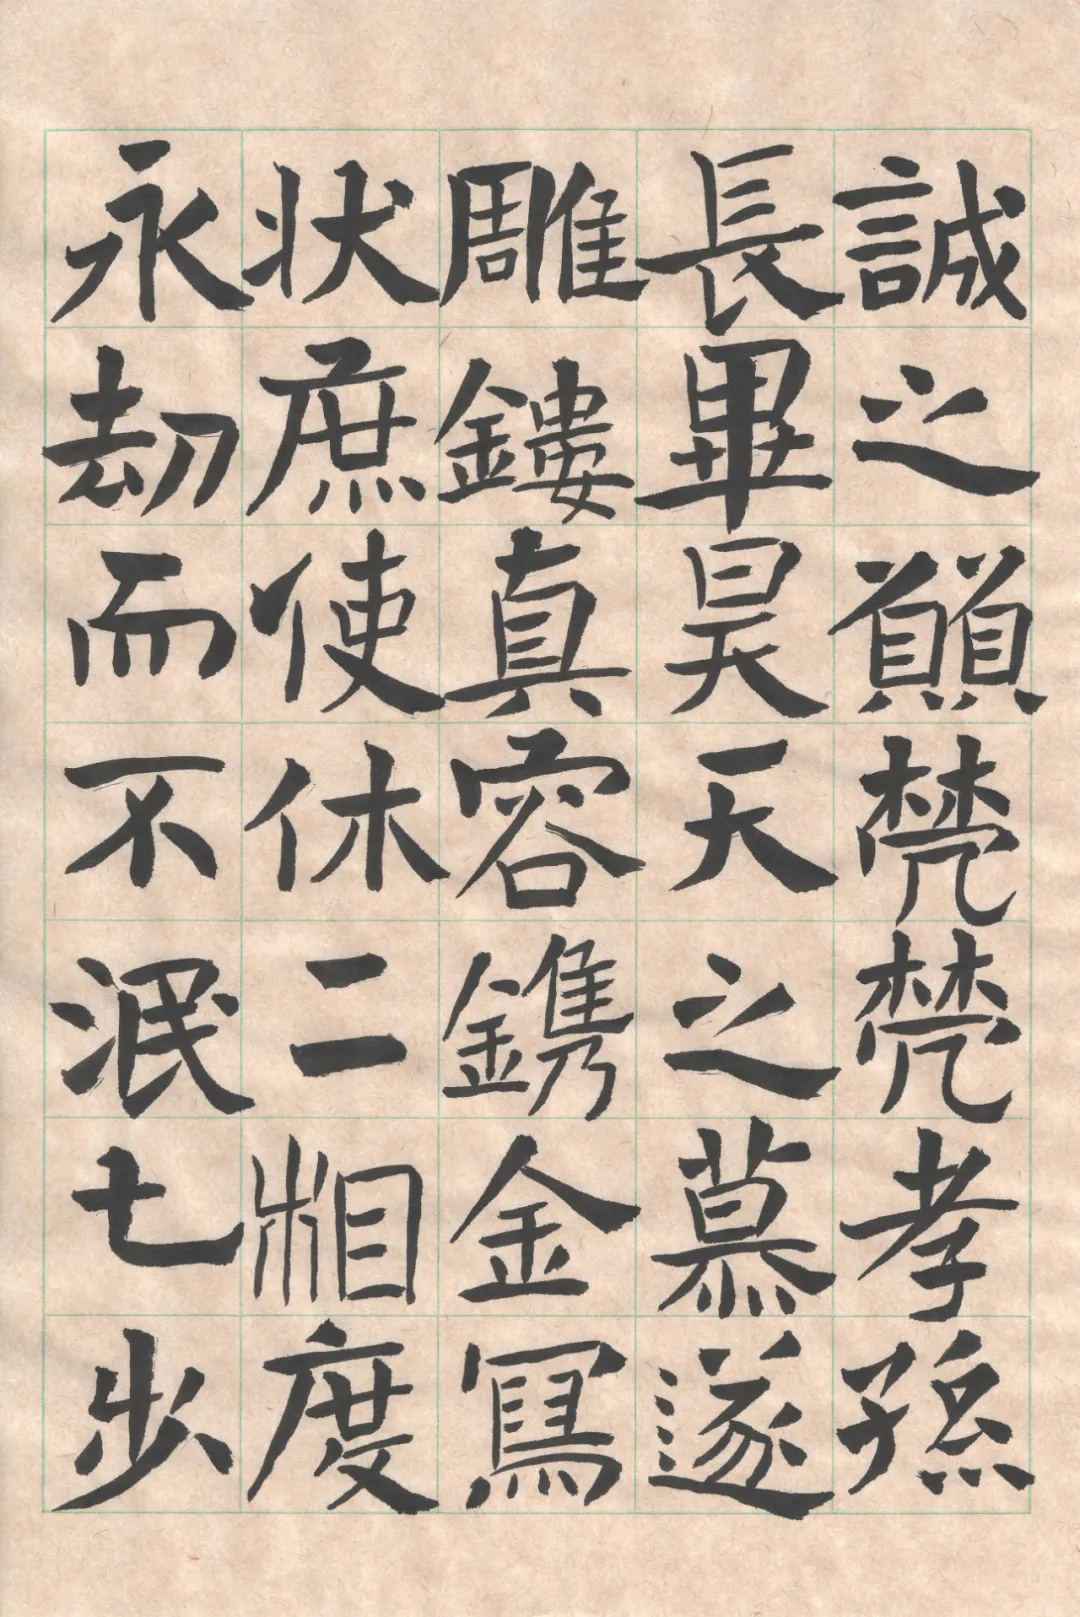 誠之願煢煢孝孫
長畢昊天之慕遂
雕鏤真容鐫金寫
状庶使休二相度
永劫而不泯七步